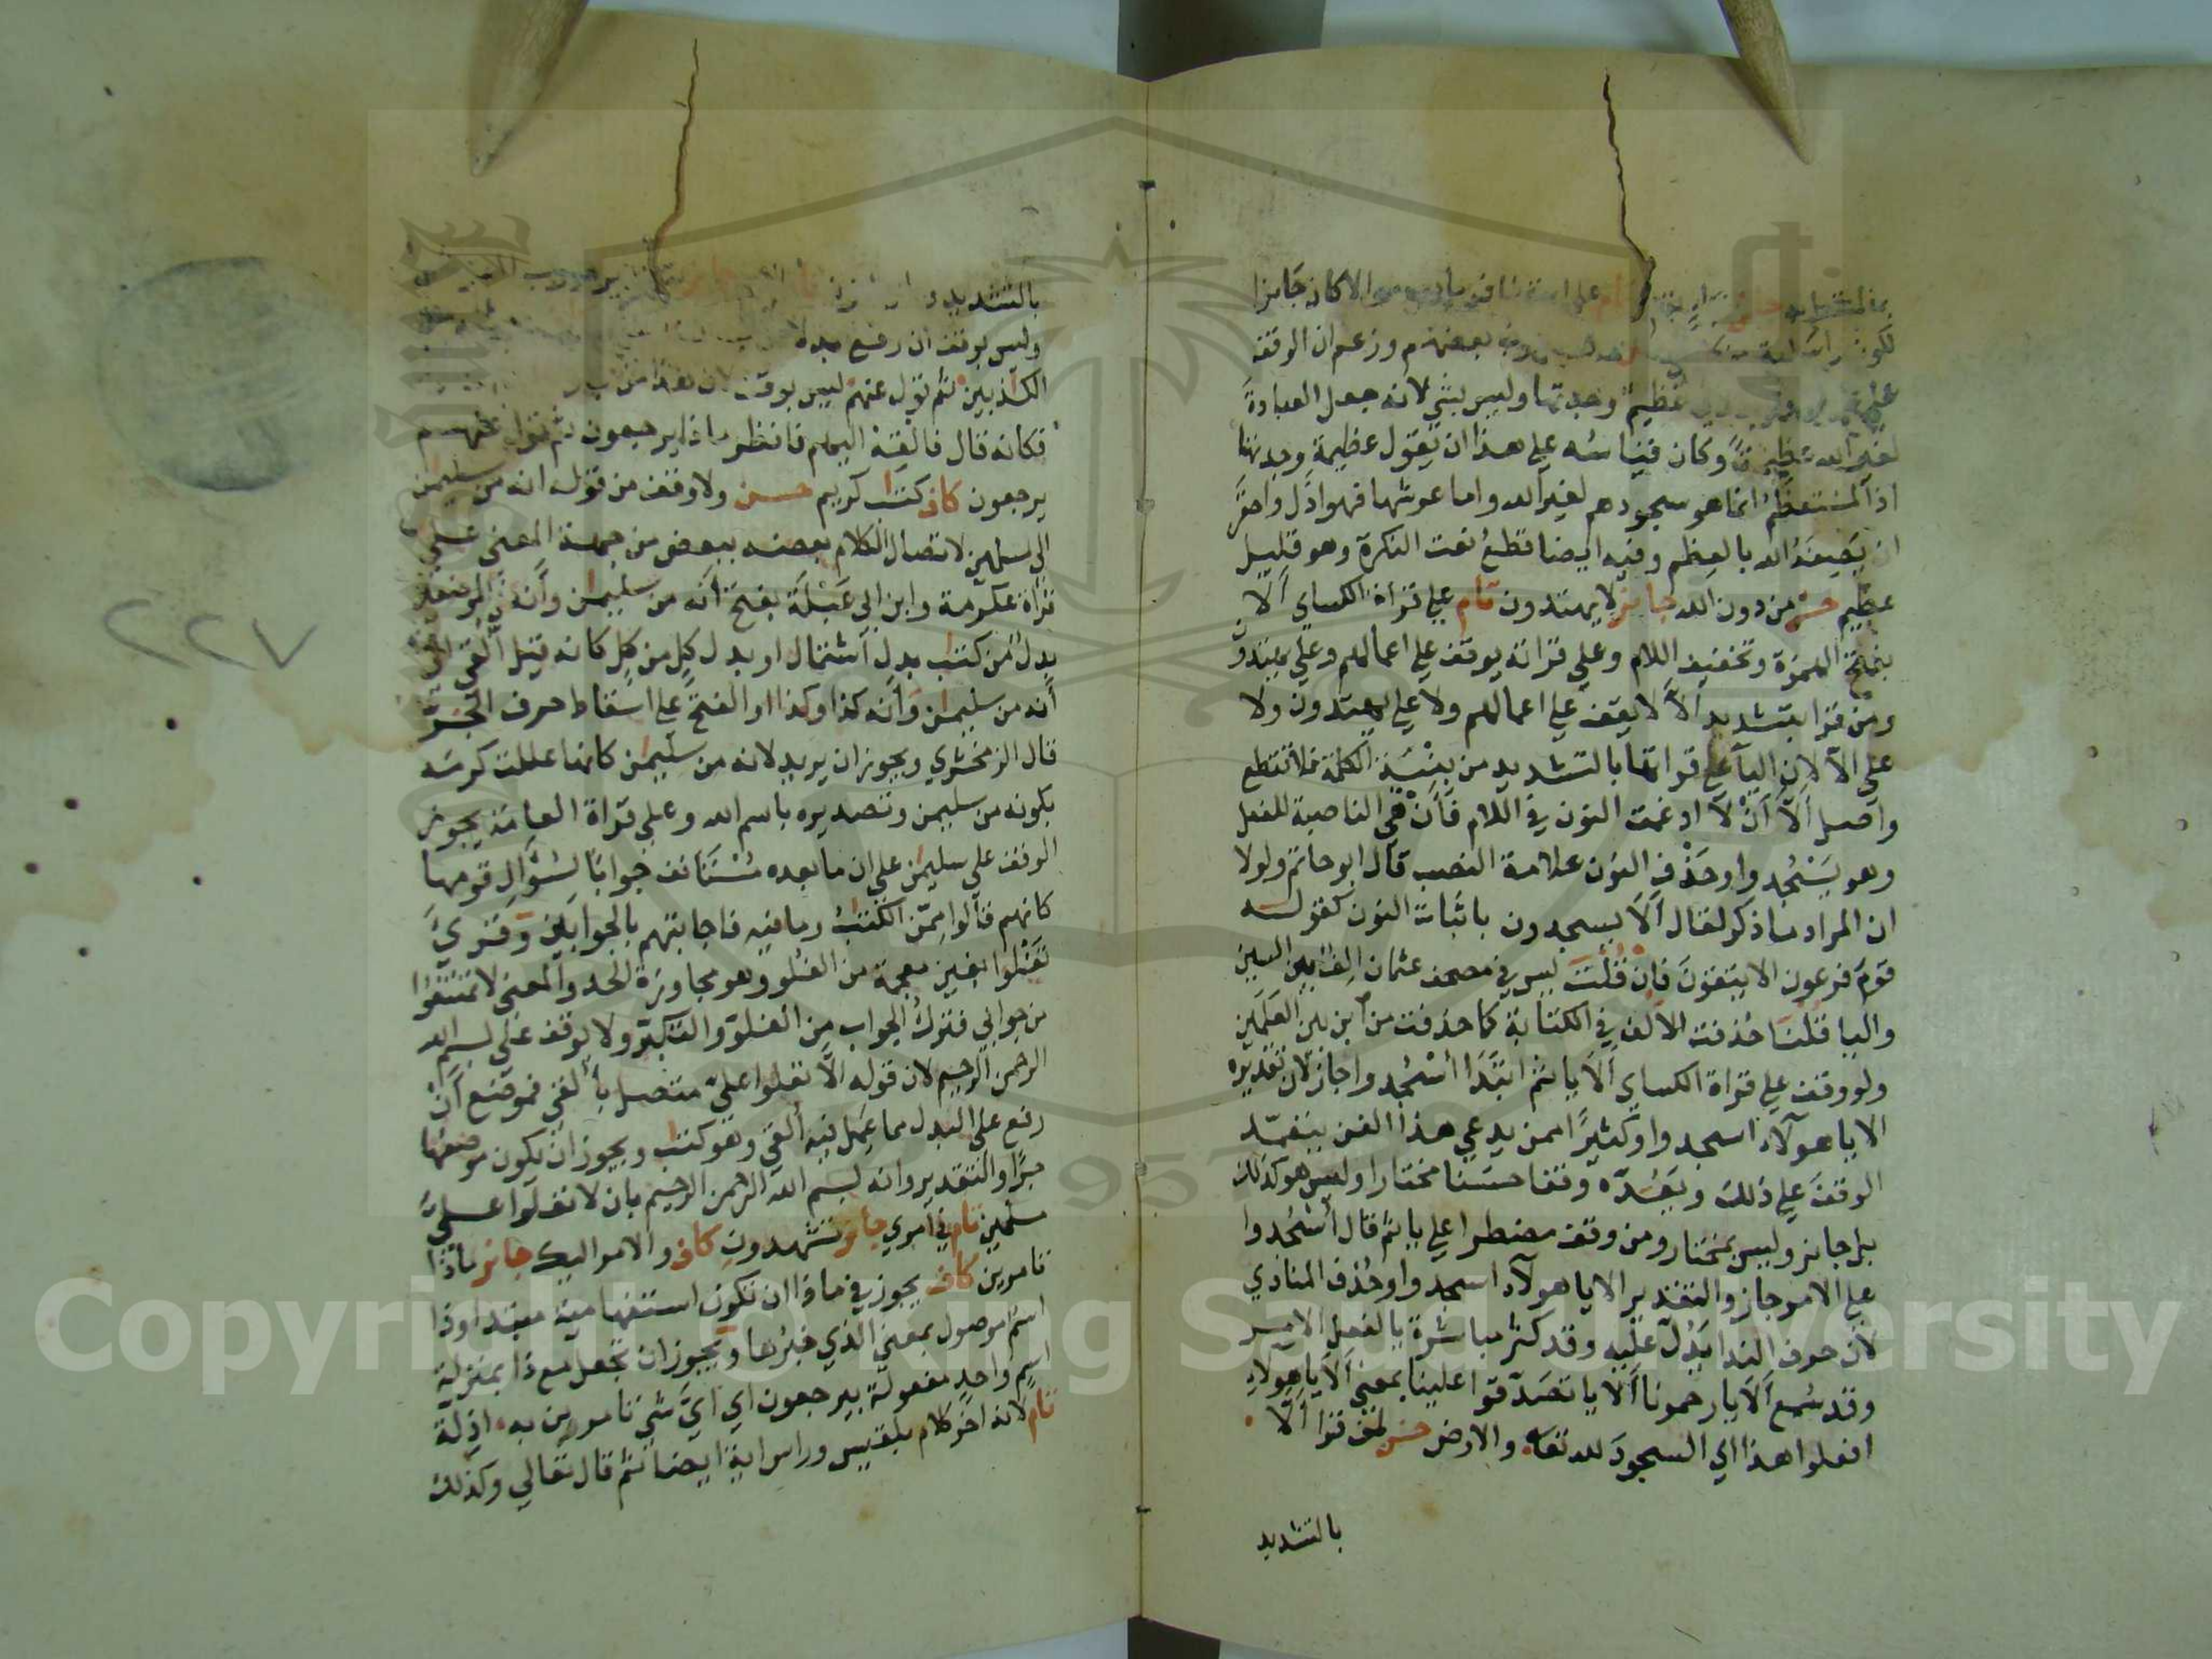 على استئناف ما بعده والا كان جائزا
بعضهم وزعم ان الوقف
عظيم وجدتها وليس بشي لانه جعل العبادة
لغير الله عظيمة وكان قياسه على هذا ان يقول عظيمة وجدتها
اذ المستعظم انما هو سجودهم لغير الله واما عرشها فهو اذل واحقر
ان يصفه الله بالعظم وفيه ايضا قطع نعت النكرة وهو قليل
عظيم حسن من دون الله جائز لا يهتدون تام على قراة الكساي ألا
بفتح الهمزة وتخفيف اللام وعلى قراته يوقف على اعمالهم وعلى يهتدون
ومن قرا بتشديد ألّا لا يقف على اعمالهم ولا على يهتدون ولا
على الا لان اليا على قراتها بالتشديد من بنية الكلمة فلا تقطع
واصل ألّا أنْ لا ادغمت النون في اللام فأن هي الناصبة للفعل
وهو يسجدوا وحذف النون علامة النصب قال ابو حاتم ولولا
ان المراد ما ذكر لقال ألا يسجدون باثبات النون كقوله
قوم فرعون الا يتقون فان قلت ليس في مصحف عثمان الف بين السين
واليا قلنا حذفت الالف في الكتابة كما حذفت من ابن بين العلمين
ولو وقف على قراة الكساي ألا يا ثم ابتدا اسجدوا جاز لان تقديره
الا يا هولاء اسجدوا وكثيرا ممن يدعي هذا الفن يتعمد
الوقف على ذلك ويعده وقفا حسنا مختارا وليس هو كذلك
بل جائز وليس بمختار ومن وقف مضطرا على يا ثم قال اسجدوا
على الامر جاز والتقدير الا يا هولاء اسجدوا وحذف المنادي
لان حرف الندا يدل عليه وقد كثر مباشرة يا لفعل الامر
وقد سمع ألا يا رحمونا ألا يا تصدقوا علينا بمعنى ألا يا هولاء
افعلوا هذا اي السجود لله تعا والارض حسن لمن قرا ألّا
بالتشديد
بالتشديد
وليس بوقف ان رفع بدلا
الكذبين ثم تول عنهم ليس بوقف لان هذا من
فكانه قال فالقه اليهم فانظر ماذا يرجعون ثم تول عنهم
يرجعون كاف كتب كريم حسن ولا وقف من قوله انه من سليمن
الى مسلمين لاتصال الكلام بعضه ببعض من جهة المعنى على
قراة عكرمة وابن ابي عبلة بفتح أنه من سليمن وأنه في الموضعين
بدل من كتب بدل اشتمال او بدل كل من كل كانه قيل القي الي
أنه من سليمن وأنه كذا وكذا او الفتح على اسقاط حرف الجر
قال الزمخشري ويجوز ان يريد لانه من سليمن كانها عللت كرمه
بكونه من سليمن وتصديره باسم الله وعلى قراة العامة يجوز
الوقف على سليمن على ان ما بعده مستانف جوابا لسؤال قومها
كانهم قالوا ممن الكتب وما فيه فاجابتهم بالجوابين وقري
تغلوا بغين معجمة من الغلو وهو مجاوزة الحد والمعنى لا تمتنعوا
من جوابي فترك الجواب من الغلو والتكبر ولا يوقف على بسم الله
الرحمن الرحيم لان قوله ألّا تعلوا علي متصل بألقي فموضع أنْ
رفع على البدل مما عمل فيه القي وهو كتب ويجوز ان يكون موضعها
جرا والتقدير وانه بسم الله الرحمن الرحيم بان لا تعلوا علي
مسلمين تام في امري جائز تشهدون كاف والامر اليك جائز ماذا
تامرين كاف يجوز في ماذا ان تكون استفهامية مبتدا وذا
اسم موصول بمعنى الذي خبرها ويجوز ان تجعل مع ذا بمنزلة
اسم واحد مفعولة بيرجعون اي اي شي تامرين به اذلة
تام لانه اخر كلام بلقيس وراس اية ايضا ثم قال تعالى وكذلك
٢٢٧
Copyright © King Saud University
1957